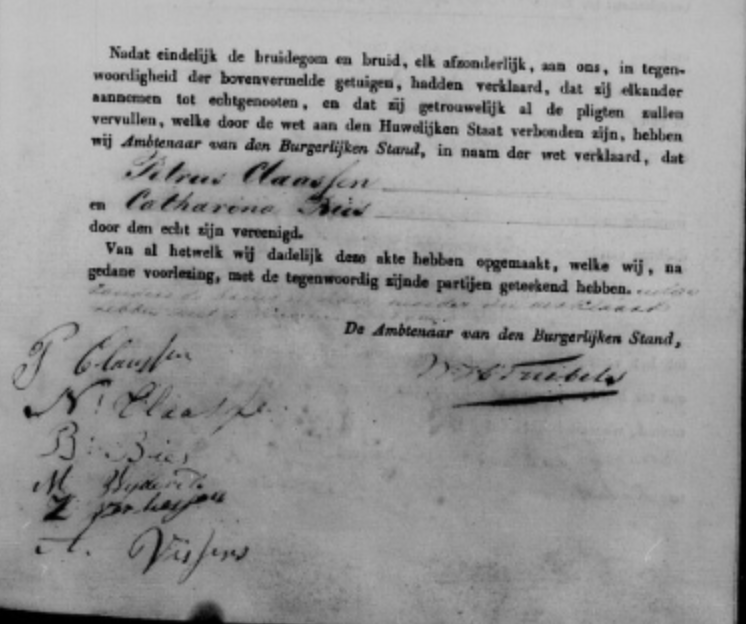 Nadat eindelijk de bruidegom en bruid, elk afzonderlijk, aan ons, in tegen-
woordigheid der bovenvermelde getuigen, hadden verklaard, dat zij elkander
aannemen tot echtgenooten, en dat zij getrouwelijk al de pligten zullen
vervullen, welke door de wet aan den Huwelijken Staat verbonden zijn, hebben
wij Ambtenaar van den Burgerlijken Stand, in naam der wet verklaard, dat
Petrus Claassen
en Catharina Bies
door den echt zijn vereenigd.
Van al hetwelk wij dadelijk deze akte hebben opgemaakt, welke wij, na
gedane voorlezing, met de tegenwoordig zijnde partijen geteekend hebben.
De Ambtenaar van den Burgerlijken Stand,
P Claassen
N: Claasse
B: Bies
M
A. Vissers